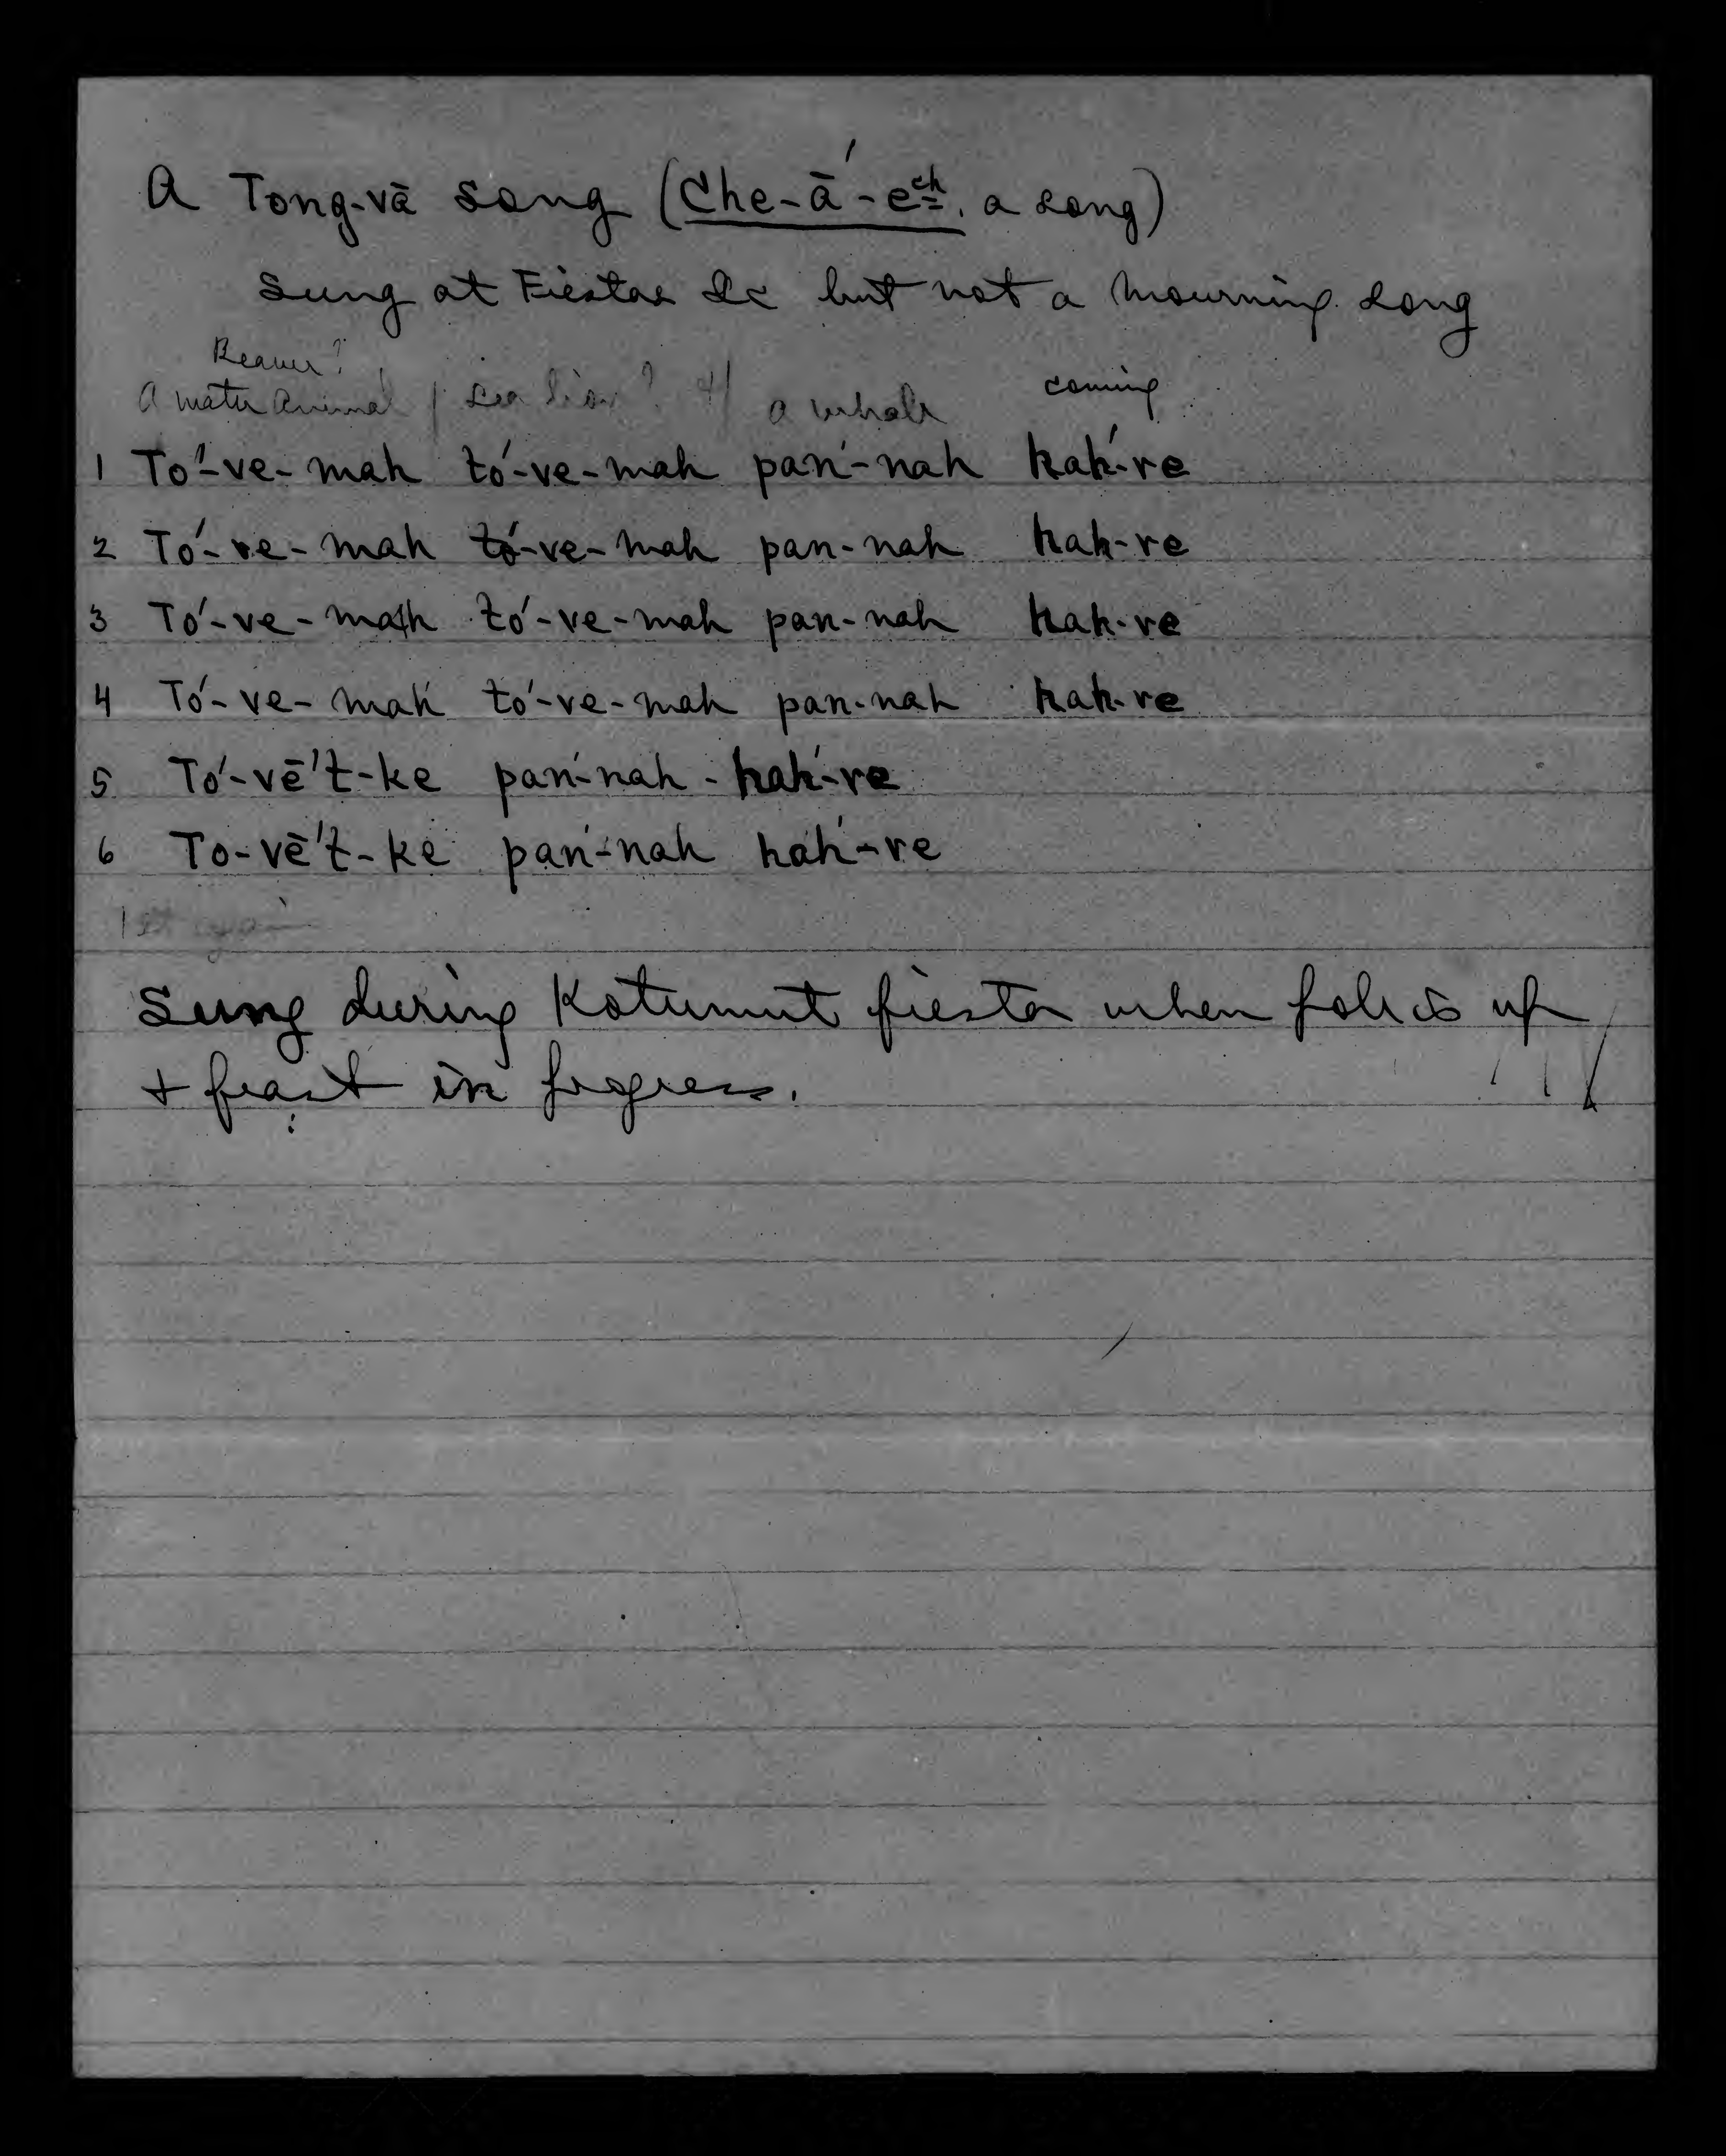 A Tong-vā song (Che-ā́-eᶜʰ, a song)
Sung at Fiestas &c but not a mourning song
Beaver?
A water animal / sea lion? a whale coming
1 To'-ve-mah tó-ve-mah pan'-nah hah'-re
2 Tó-ve-mah tó-ve-mah pan-nah hah-re
3 Tó-ve-mah tó-ve-mah pan-nah hah-re
4 Tó-ve-mah tó-ve-mah pan-nah hah-re
5 Tó-vē't-ke pan'-nah - hah'-re
6 To-vē't-ke pan'-nah hah'-re
Sung during Kotumut fiesta when pole is up
+ feast in progress.